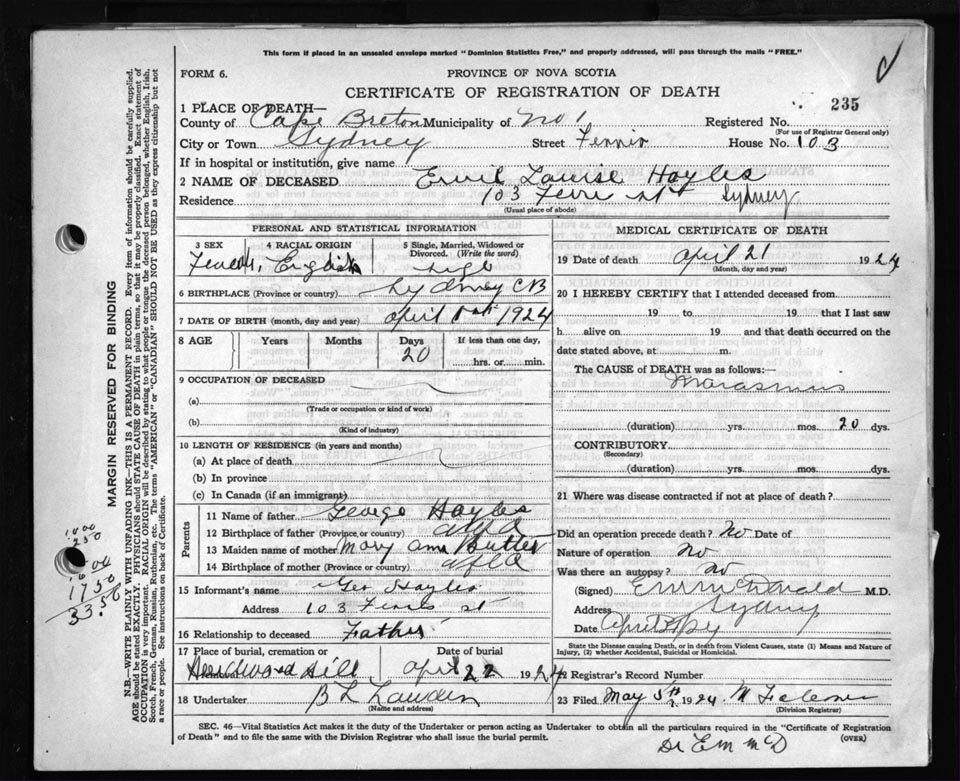 This form if placed in an unsealed envelope marked "Dominion Statistics Free," and properly addressed, will pass through the mails "FREE."
FORM 6.
PROVINCE OF NOVA SCOTIA
CERTIFICATE OF REGISTRATION OF DEATH
235
1 PLACE OF DEATH—
County of Cape Breton Municipality of No 1 Registered No.
(For use of Registrar General only)
City or Town Sydney Street House No. 103
If in hospital or institution, give name
2 NAME OF DECEASED Louise Hayles
Residence 103 st Sydney
(Usual place of abode)
PERSONAL AND STATISTICAL INFORMATION
3 SEX 4 RACIAL ORIGIN 5 Single, Married, Widowed or Divorced. (Write the word)
Female English
6 BIRTHPLACE (Province or country) Sydney CB
7 DATE OF BIRTH (month, day and year) April 1st 1924
8 AGE Years Months Days If less than one day,
20 hrs. or min.
9 OCCUPATION OF DECEASED
(a)
(Trade or occupation or kind of work)
(b)
(Kind of industry)
10 LENGTH OF RESIDENCE (in years and months)
(a) At place of death
(b) In province
(c) In Canada (if an immigrant)
Parents
11 Name of father George Hayles
12 Birthplace of father (Province or country) nfld
13 Maiden name of mother Mary Ann Butler
14 Birthplace of mother (Province or country) nfld
15 Informant's name Geo Hayles
Address 103 st
16 Relationship to deceased Father
17 Place of burial, cremation or removal Date of burial
Hardwood Hill April 22 1924
18 Undertaker B L
(Name and address)
MEDICAL CERTIFICATE OF DEATH
19 Date of death April 21 1924
(Month, day and year)
20 I HEREBY CERTIFY that I attended deceased from
19 to 19 that I last saw
h alive on 19 and that death occurred on
date stated above, at m.
The CAUSE of DEATH was as follows:
Marasmus
(duration) yrs. mos. 20 dys.
CONTRIBUTORY
(Secondary)
(duration) yrs. mos. dys.
21 Where was disease contracted if not at place of death?
Did an operation precede death? no Date of
Nature of operation no
Was there an autopsy? no
(Signed) E M McDonald M.D.
Address Sydney
Date
State the Disease causing Death, or in death from Violent Causes, state (1) Means and Nature of Injury, (2) whether Accidental, Suicidal or Homicidal.
22 Registrar's Record Number
23 Filed May 5th 1924
(Division Registrar)
SEC. 46—Vital Statistics Act makes it the duty of the Undertaker or person acting as Undertaker to obtain all the particulars required in the "Certificate of Registration of Death" and to file the same with the Division Registrar who shall issue the burial permit.
(OVER)
Dr E M McD
MARGIN RESERVED FOR BINDING
N.B.—WRITE PLAINLY WITH UNFADING INK—THIS IS A PERMANENT RECORD. Every item of information should be carefully supplied.
AGE should be stated EXACTLY. PHYSICIANS should STATE CAUSE OF DEATH in plain terms, so that it may be properly classified. Exact statement of
OCCUPATION is very important. RACIAL ORIGIN will be described by stating to what people or tongue the deceased person belonged, whether English, Irish,
Scotch, French, German, Russian, Ruthenian, etc. The terms "AMERICAN" or "CANADIAN" SHOULD NOT BE USED as they express citizenship but not
a race or people. See instructions on back of Certificate.